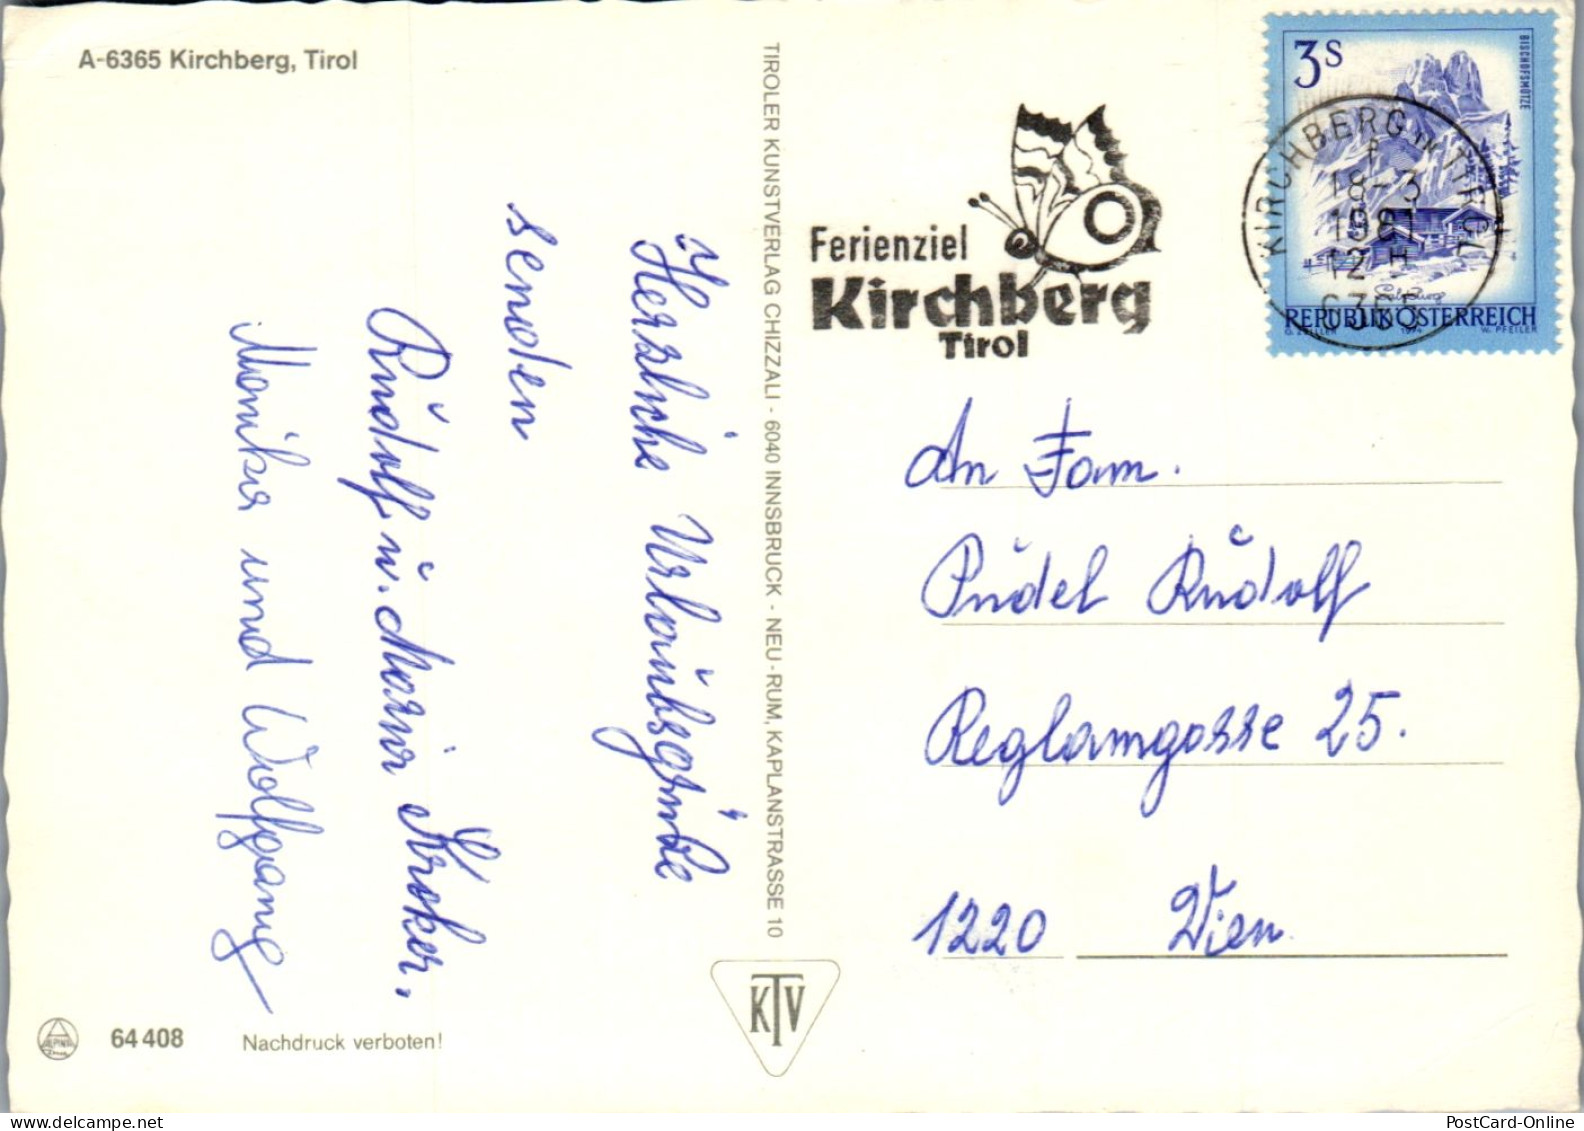 A-6365 Kirchberg, Tirol
Herzliche Urlaubsgrüße
senden
Rudolf u. Maria Kroker.
Monika und Wolfgang
64 408
Nachdruck verboten!
TIROLER KUNSTVERLAG CHIZZALI - 6040 INNSBRUCK - NEU-RUM, KAPLANSTRASSE 10
KTV
Ferienziel
Kirchberg
Tirol
3S
BISCHOFSMÜTZE
Salzburg
REPUBLIK ÖSTERREICH
G. ZEILLER 1974 W. PFEILER
KIRCHBERG IN TIROL
f
18-3
1981
12-H
6365
An Fam.
Pudel Rudolf
Reglamgasse 25.
1220 Wien
PostCard-Online